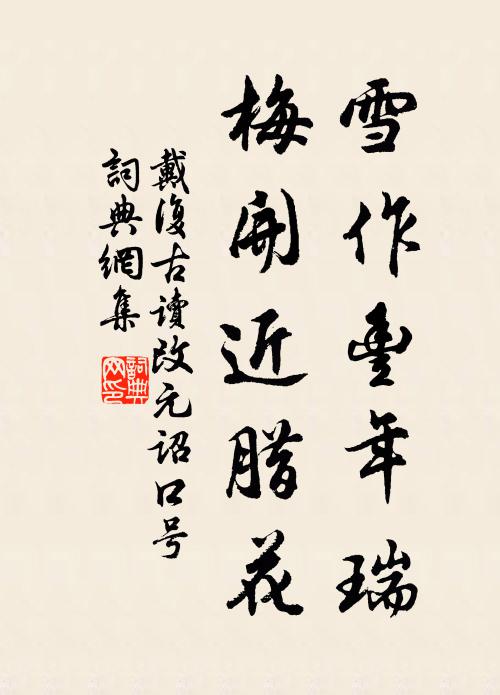 雪作豐年瑞
梅開近腊花
戴復古讀改元詔口号
詞典網集
詞典网印